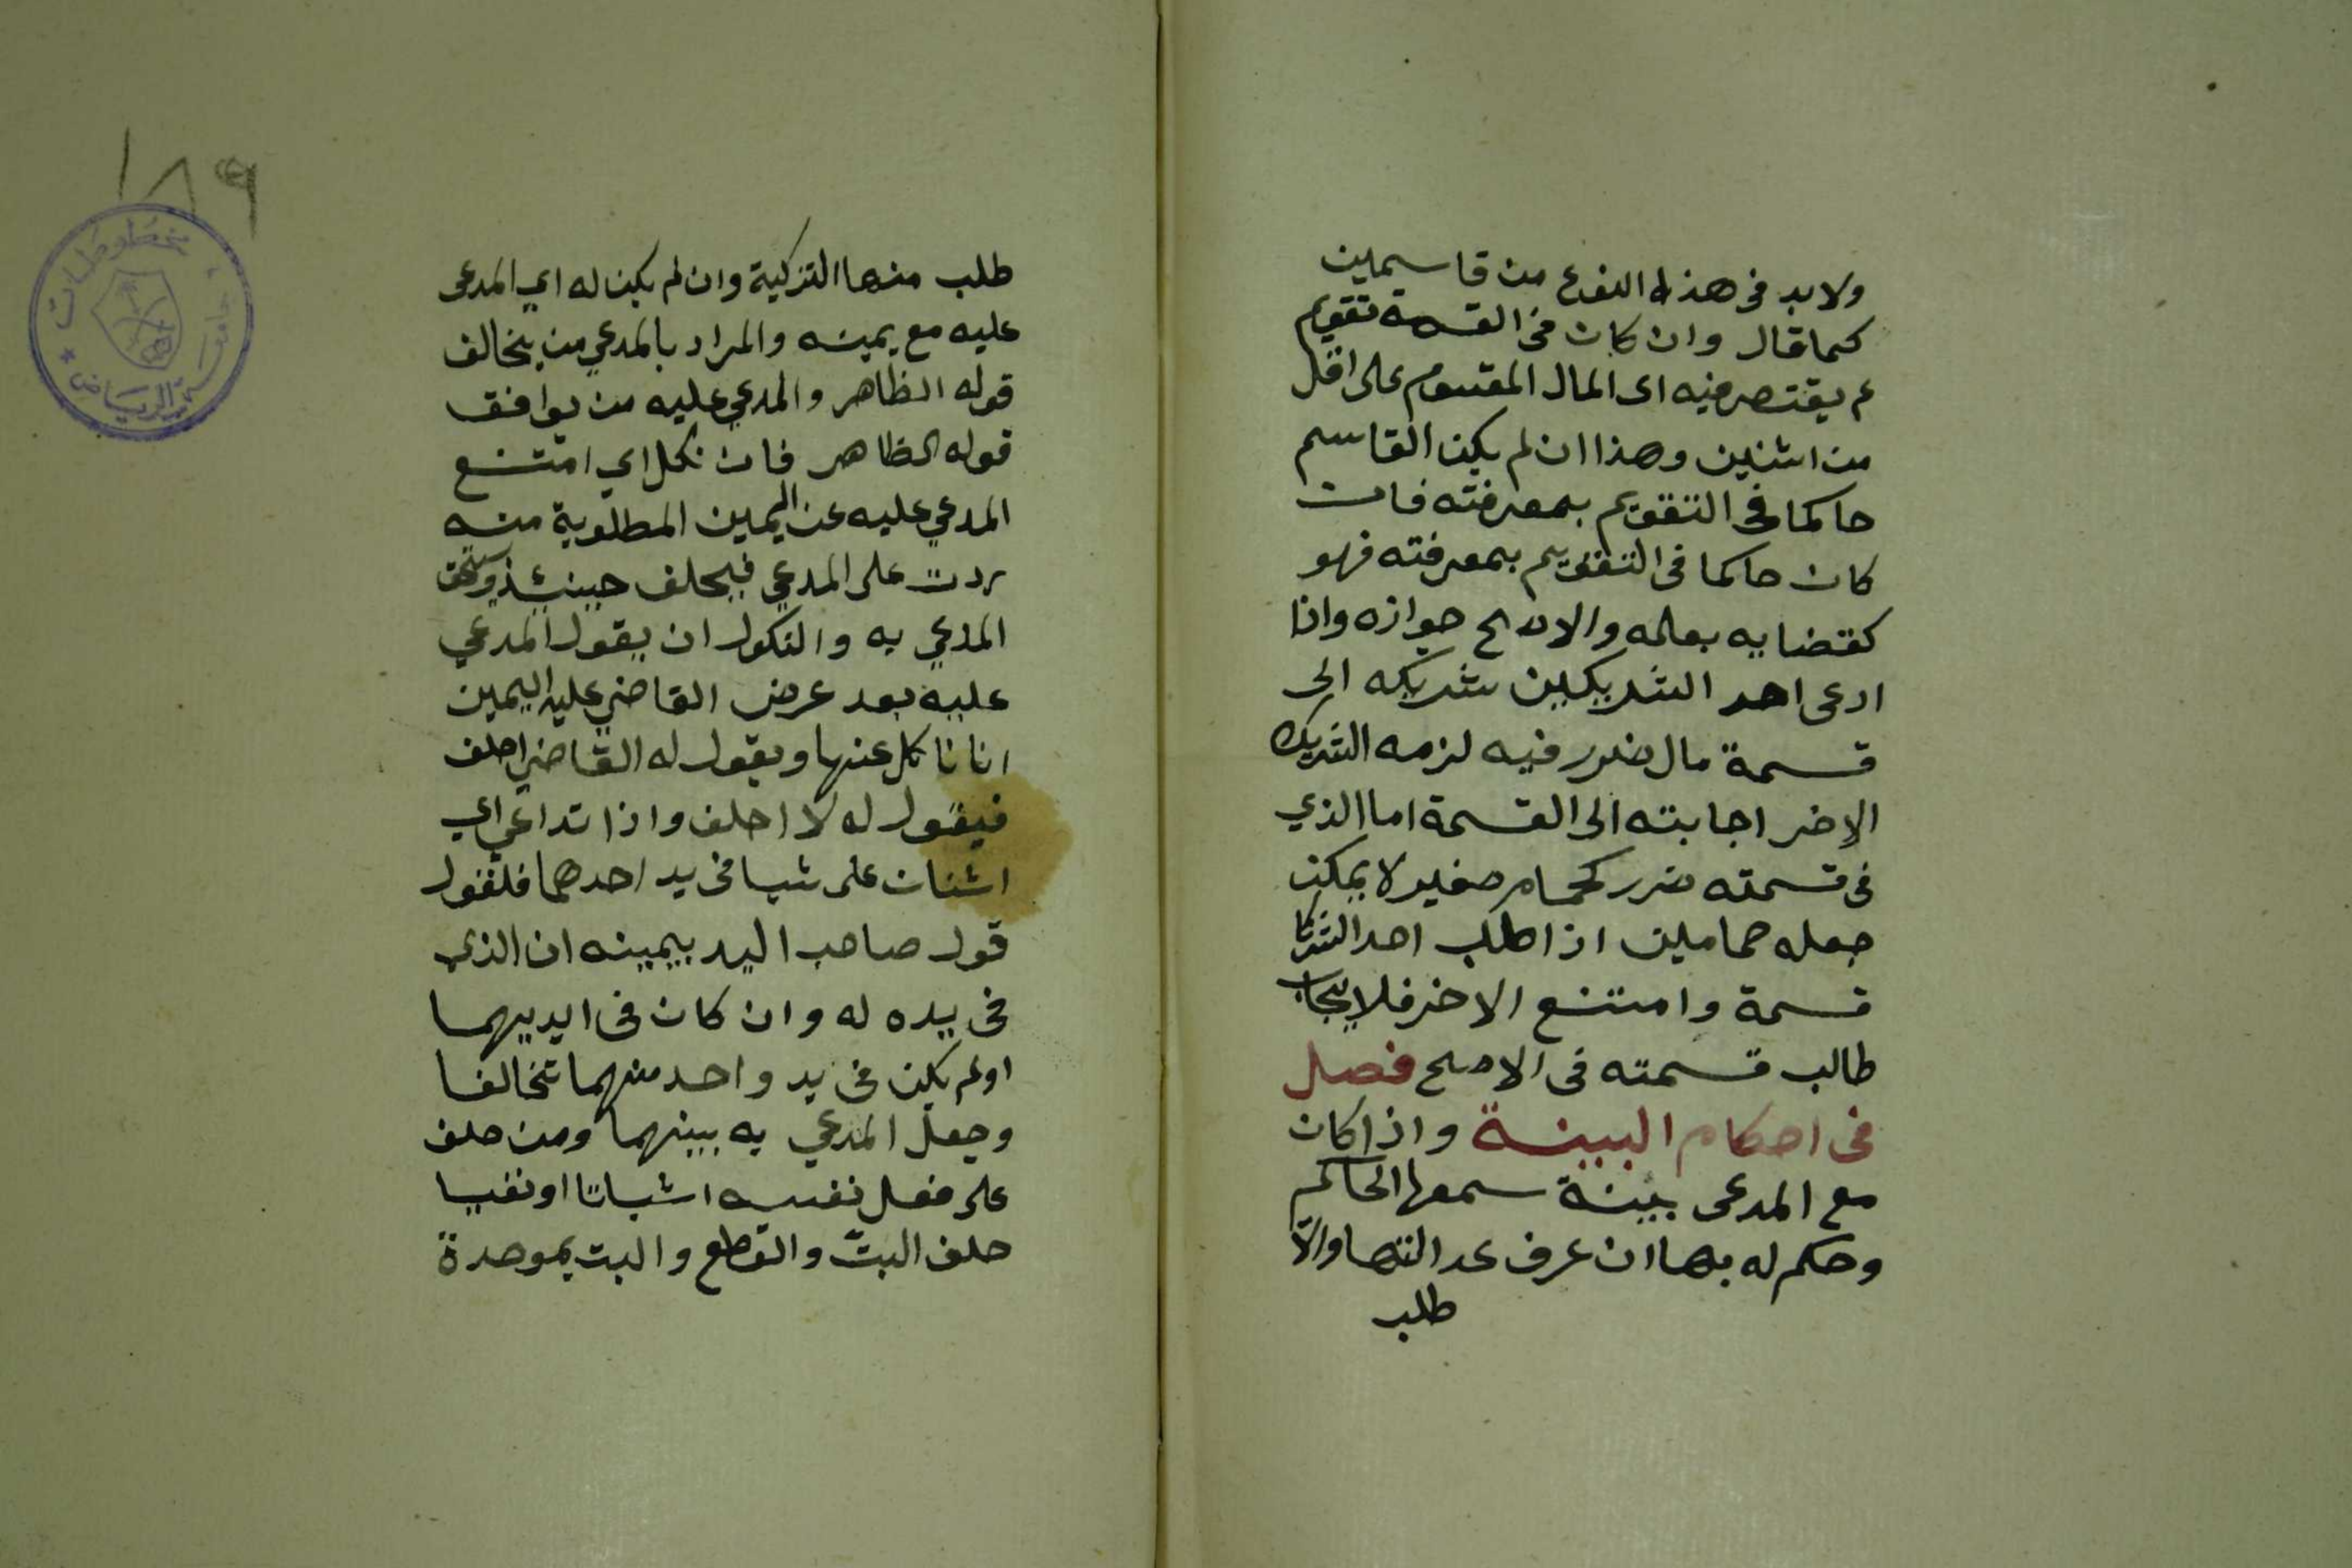 ولا بد فى هذا النوع من قاسمين
كما قال وان كان فى القسمة تقويم
لم يقتصر فيه اى المال المقسوم على اقل
من اثنين وهذا ان لم يكن القاسم
حاكما فى التقويم بمعرفته فان
كان حاكما فى التقويم بمعرفته فهو
كقضايه بعلمه والاصح جوازه واذا
ادعى احد الشريكين شريكه الى
قسمة مال ضرر فيه لزمه الشريك
الاخر اجابته الى القسمة اما الذي
فى قسمته ضرر كحمام صغير لا يمكن
جعله حمامين اذا طلب احد الشركا
قسمة وامتنع الاخر فلا يجاب
طالب قسمته فى الاصح فصل
فى احكام البينة واذا كان
مع المدعى بينة سمعها الحاكم
وحكم له بها ان عرف عدالتها والا
طلب
١٨٩
مخطوطات
جامعة الرياض
طلب منها التزكية وان لم يكن له اي المدعى
عليه مع يمينه والمراد بالمدعي من يخالف
قوله الظاهر والمدعي عليه من يوافق
قوله الظاهر فان نكل اي امتنع
المدعي عليه عن اليمين المطلوبة منه
ردت على المدعي فيحلف حينئذ ويستحق
المدعي به والنكول ان يقول المدعي
عليه بعد عرض القاضي عليه اليمين
انا ناكل عنها ويقول له القاضي احلف
فيقول له لا احلف واذا تداعي اي
اثنان على شيا فى يد احدهما فلقول
قول صاحب اليد بيمينه ان الذي
فى يده له وان كان فى ايديهما
او لم يكن فى يد واحد منهما تخالفا
وجعل المدعي به بينهما ومن حلف
على فعل نفسه اثباتا او نفيا
حلف البتّ والقطع والبت بموحدة